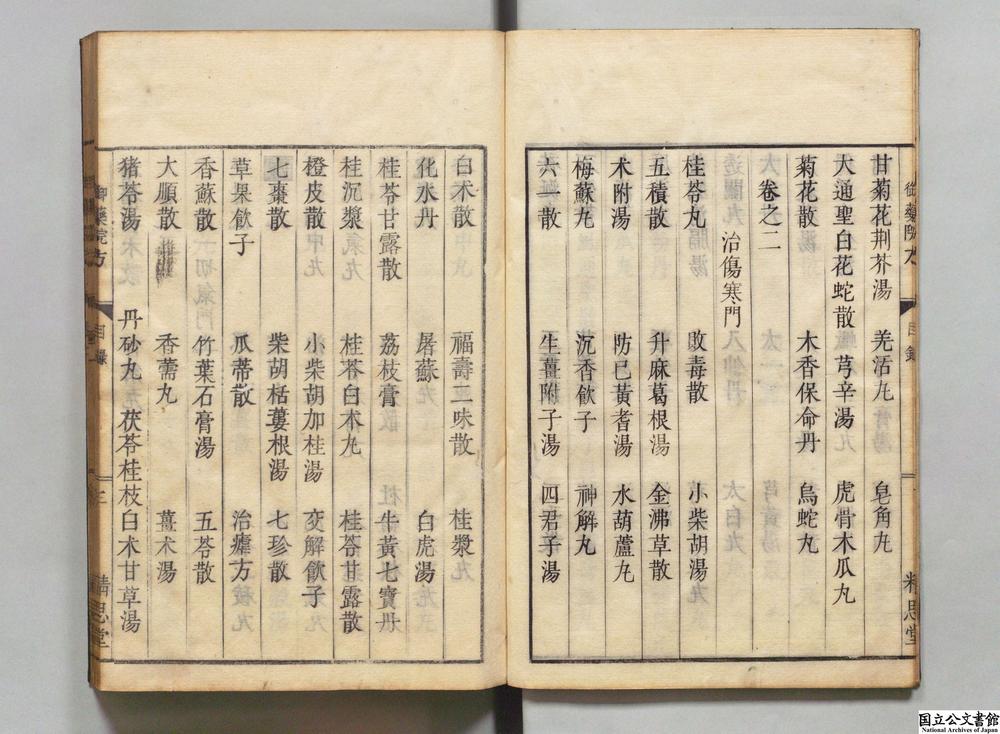 甘菊花荆芥湯 羌活丸 皂角丸
大通聖白花蛇散 芎辛湯 虎骨木瓜丸
菊花散 木香保命丹 烏蛇丸
卷之二
治傷寒門
桂苓丸 敗毒散 小柴胡湯
五積散 升麻葛根湯 金沸草散
术附湯 防已黃耆湯 水葫蘆丸
梅蘇丸 沉香飲子 神解丸
六一散 生薑附子湯 四君子湯
白术散 福壽三味散 桂漿
化水丹 屠蘇 白虎湯
桂苓甘露散 荔枝膏 牛黃七寶丹
桂沉漿 桂苓白术丸 桂苓甘露散
橙皮散 小柴胡加桂湯 変解飲子
七棗散 柴胡栝蔞根湯 七珍散
草果飲子 瓜蒂散 治瘧方
香蘇散 竹葉石膏湯 五苓散
大順散 香薷丸 薑术湯
猪苓湯 丹砂丸 茯苓桂枝白术甘草湯
御藥院方 目錄 三 精思堂
国立公文書館
National Archives of Japan